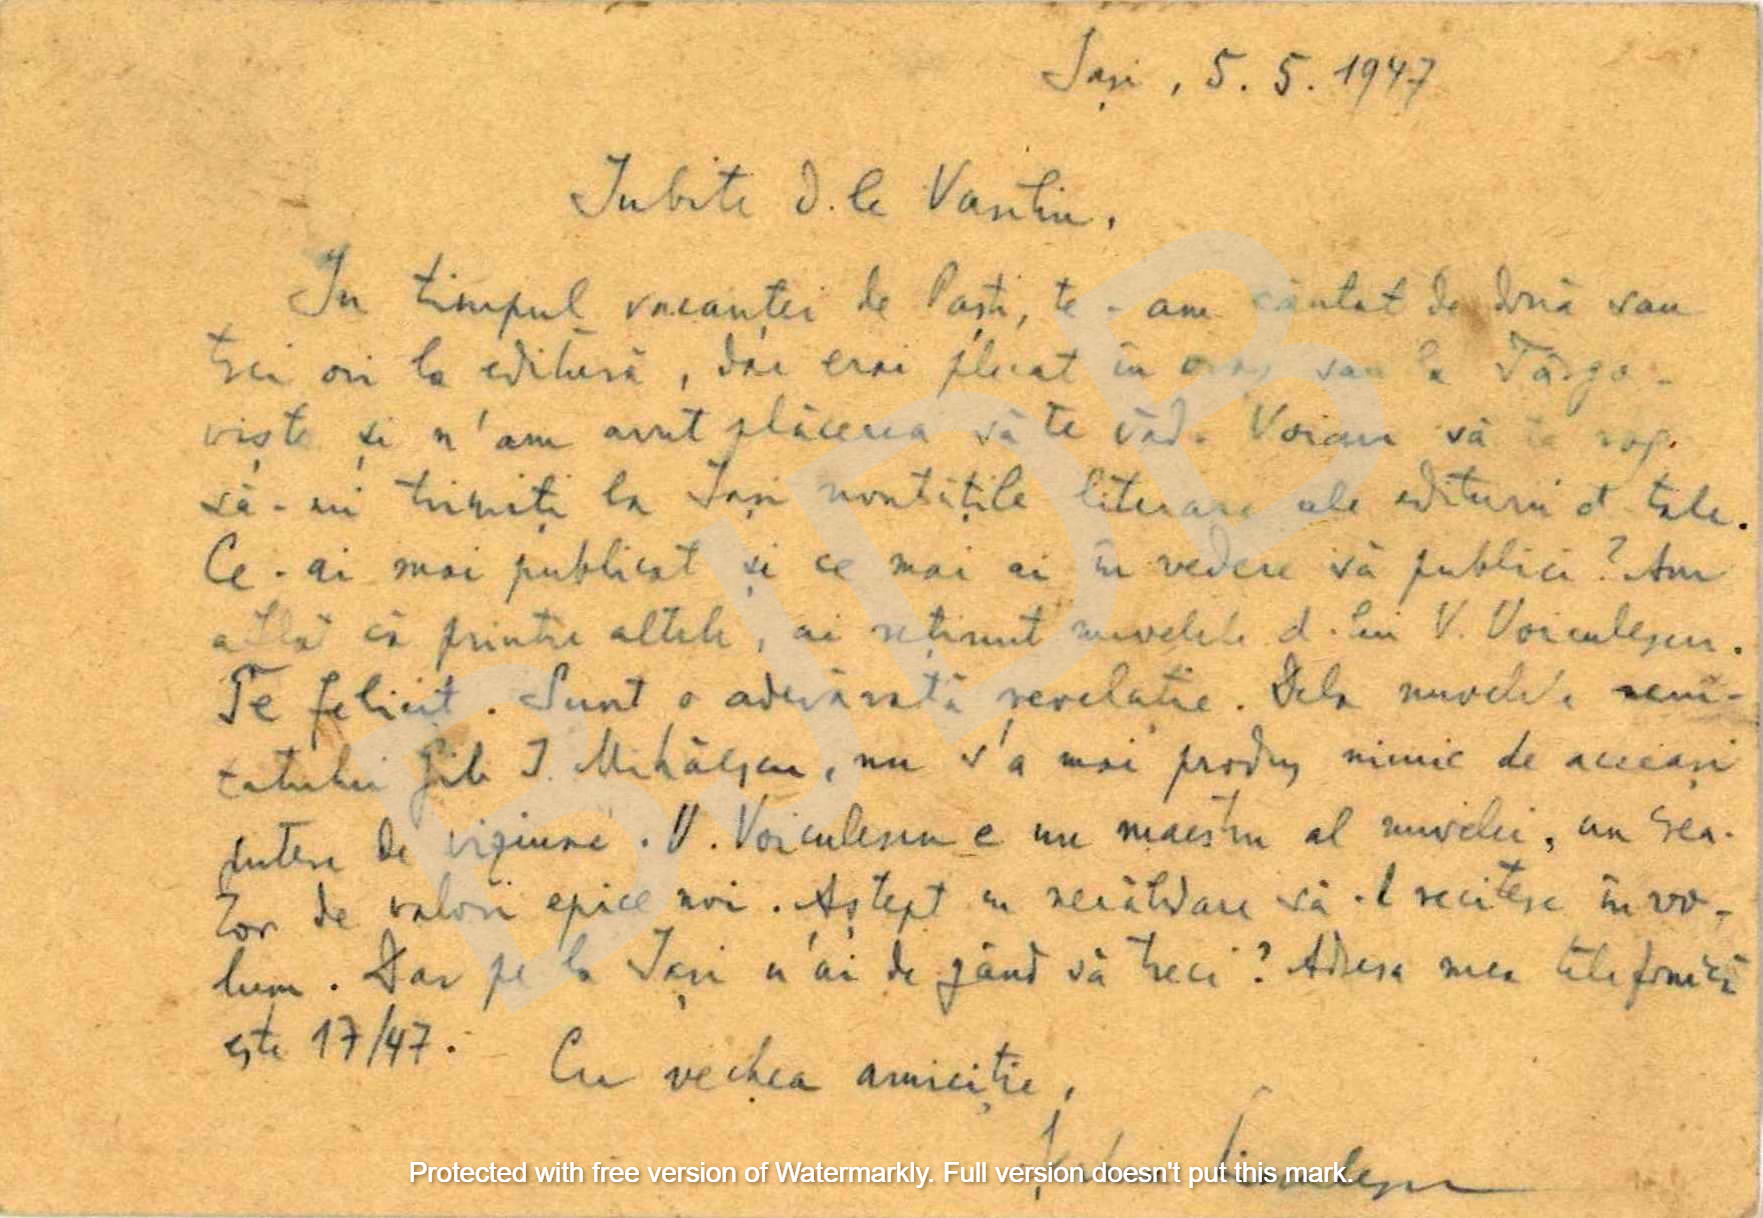 Iași, 5. 5. 1947
Iubite D.le Vasiliu,
In timpul vacanței de Paști, te-am căutat de două sau
trei ori la editură, dar erai plecat în oraș sau la Târgo-
viște și n'am avut plăcerea să te văd. Voiam să te rog
să-mi trimiți la Iași noutățile literare ale editurii d-tale.
Ce-ai mai publicat și ce mai ai în vedere să publici? Am
aflat că printre altele, ai reținut nuvelele d-lui V. Voiculescu.
Te felicit. Sunt o adevărată revelație. Dela nuvelele
Gib I. Mihăescu, nu s'a mai produs nimic de aceeași
putere de viziune. V. Voiculescu e un maestru al nuvelei, un crea-
tor de valori epice noi. Aștept cu nerăbdare să-l recitesc în vo-
lum. Dar pe la Iași n'ai de gând să treci? Adresa mea telefonică
este 17/47.
Cu vechea amiciție,
BJDB
Protected with free version of Watermarkly. Full version doesn't put this mark.